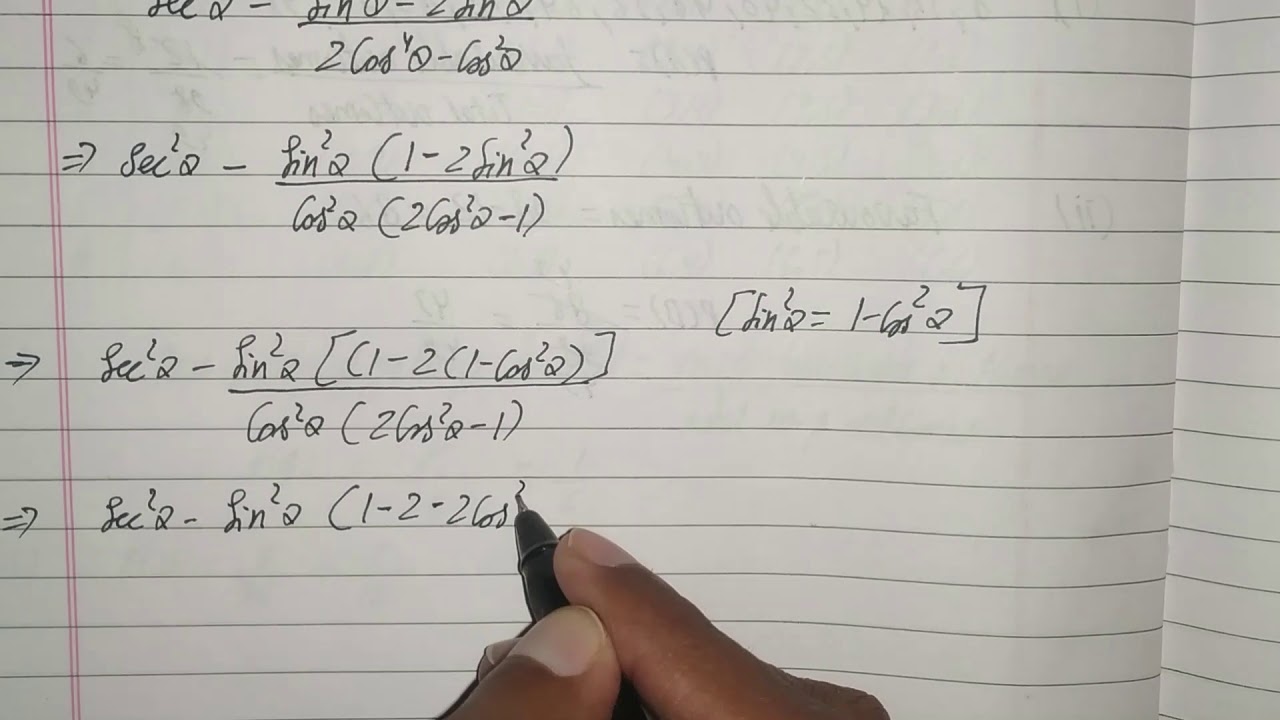 sec²θ - sin²θ - 2sin⁴θ
2Cos⁴θ - Cos²θ
⇒ sec²θ - sin²θ (1 - 2sin²θ)
Cos²θ (2Cos²θ - 1)
[sin²θ = 1 - Cos²θ]
⇒ sec²θ - sin²θ [(1 - 2(1 - Cos²θ)]
Cos²θ (2Cos²θ - 1)
⇒ sec²θ - sin²θ (1 - 2 - 2Cos²